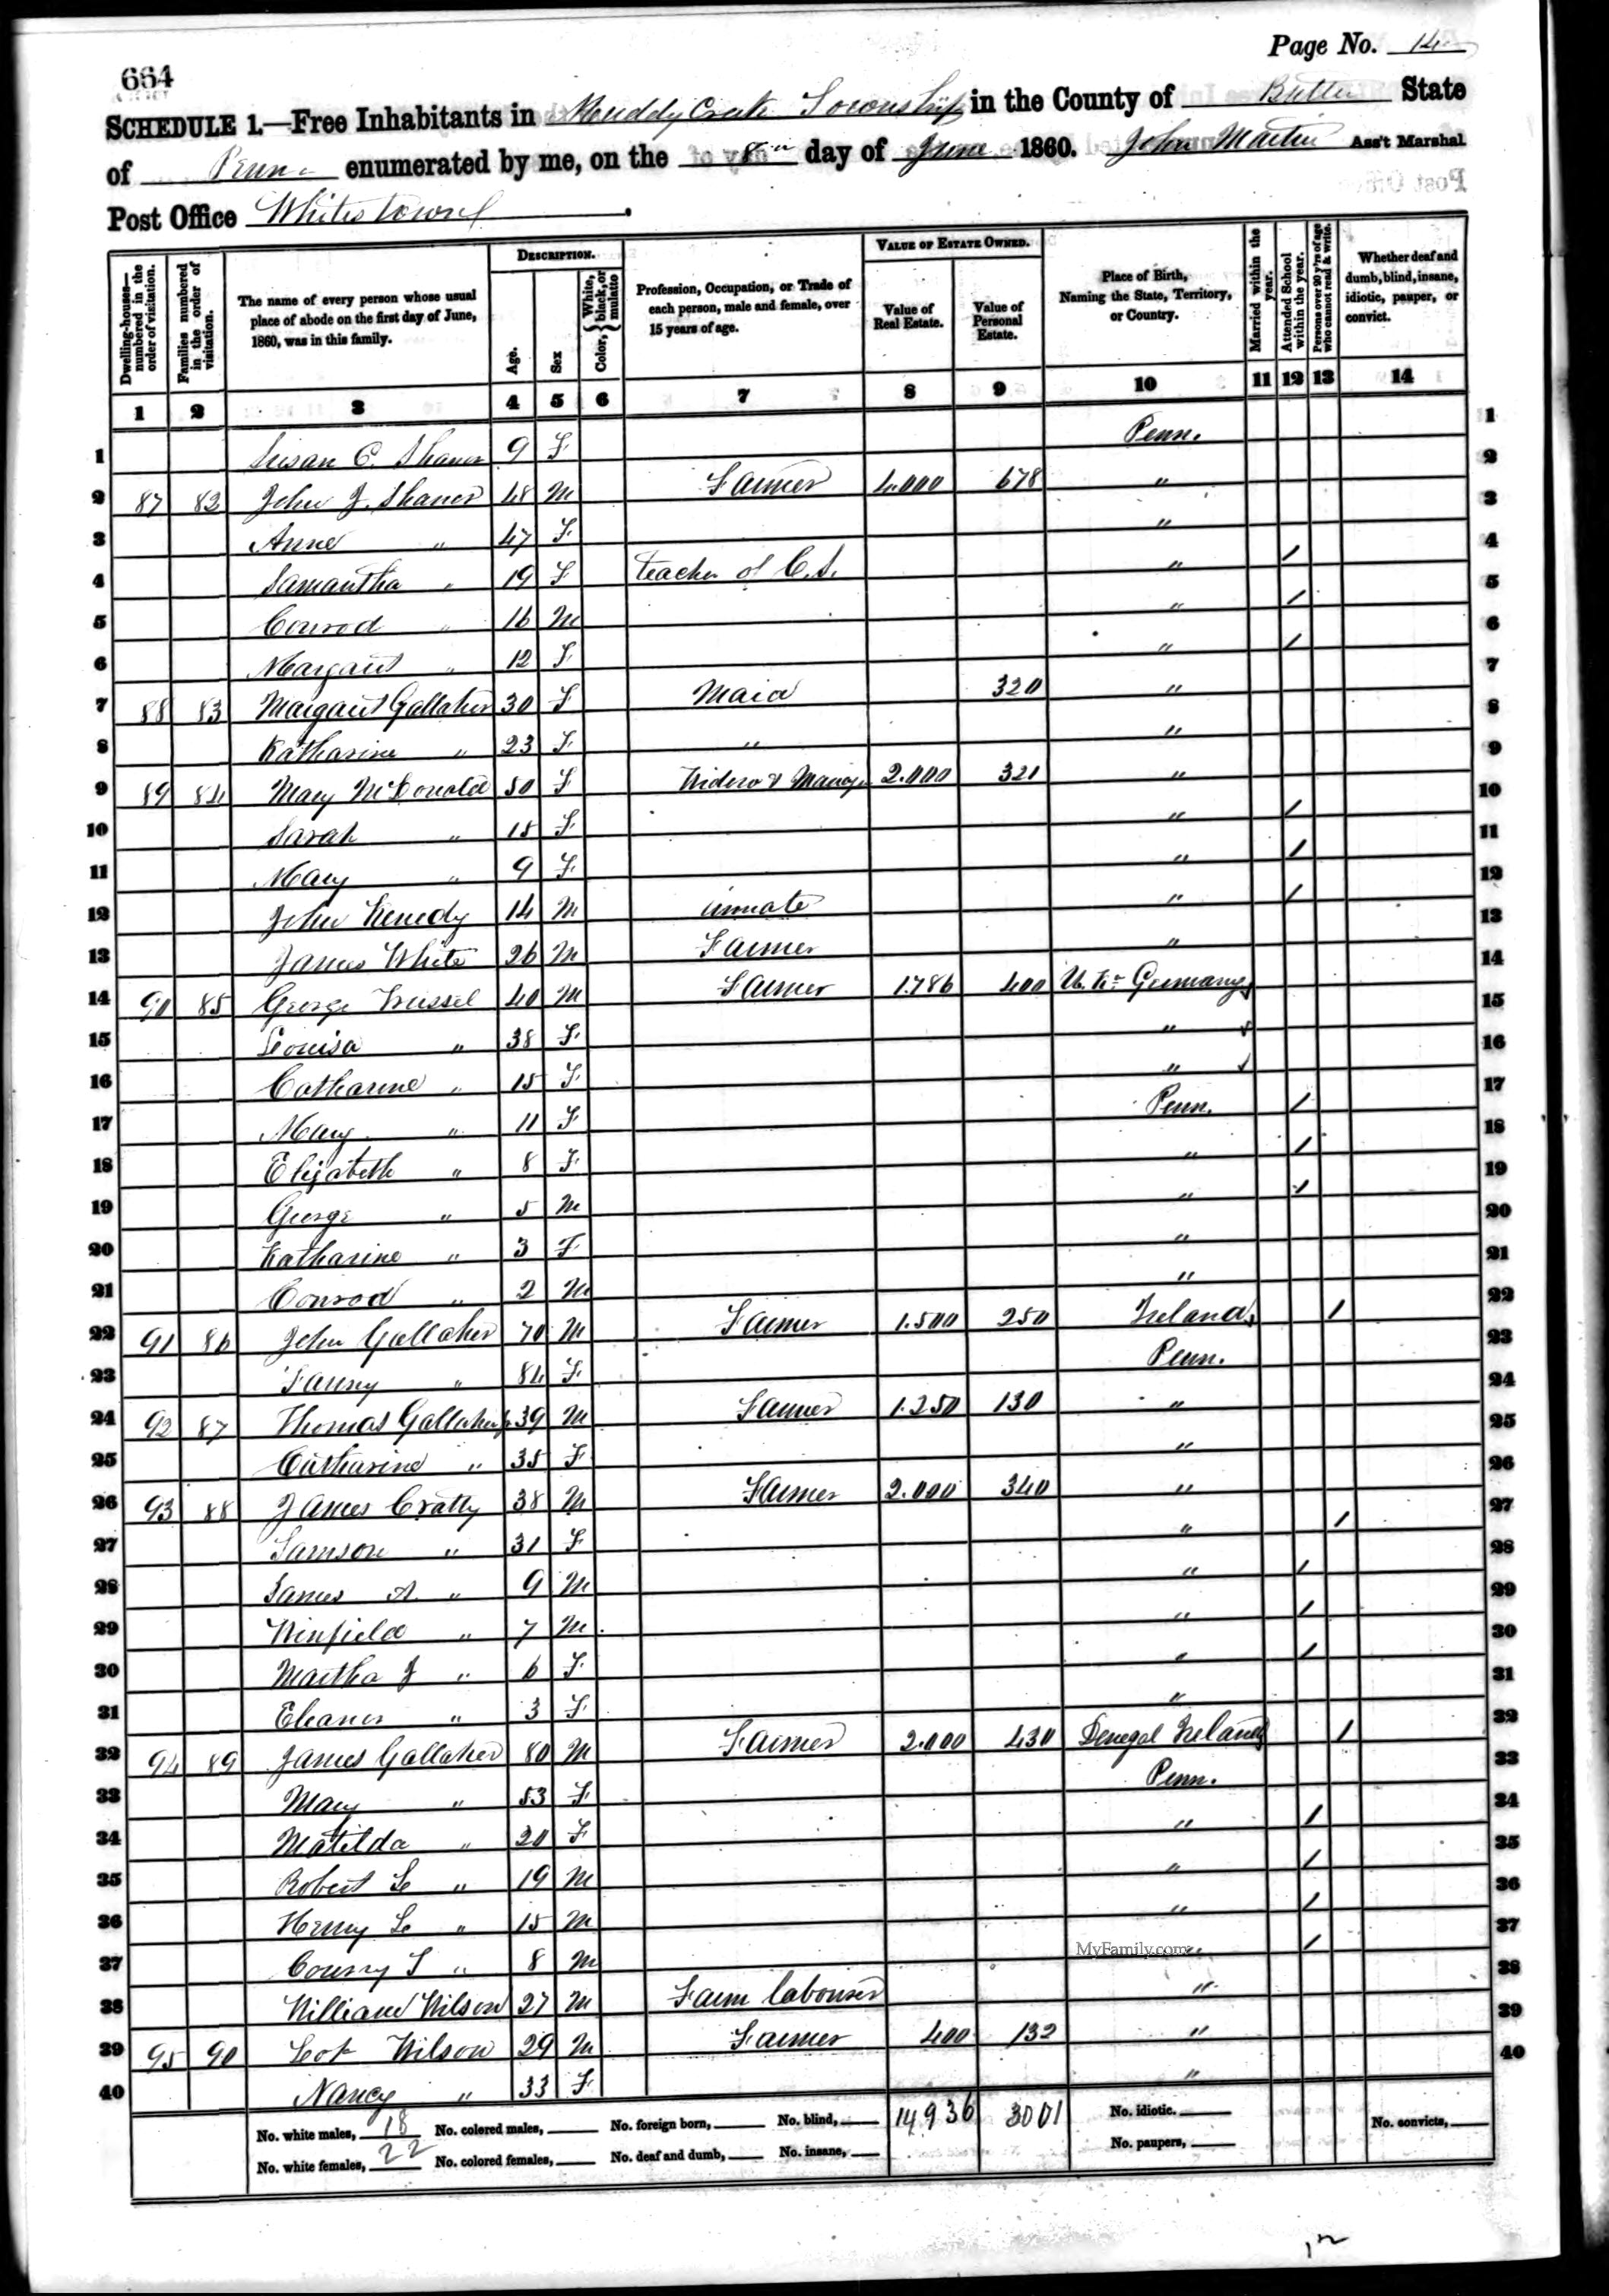 Page No. 14
664
SCHEDULE 1.—Free Inhabitants in Muddy Creek Township in the County of Butler State
of Penn enumerated by me, on the 8th day of June 1860. John Martin Ass't Marshal
Post Office Whitestown
Dwelling-houses—numbered in the order of visitation.
Families numbered in the order of visitation.
The name of every person whose usual place of abode on the first day of June, 1860, was in this family.
DESCRIPTION.
Age.
Sex
Color, { White, black, or mulatto
Profession, Occupation, or Trade of each person, male and female, over 15 years of age.
VALUE OF ESTATE OWNED.
Value of Real Estate.
Value of Personal Estate.
Place of Birth, Naming the State, Territory, or Country.
Married within the year.
Attended School within the year.
Persons over 20 y'rs of age who cannot read & write.
Whether deaf and dumb, blind, insane, idiotic, pauper, or convict.
1 2 3 4 5 6 7 8 9 10 11 12 13 14
1 Susan C. Shaner 9 F Penn. 1
2 87 82 John J. Shaner 48 M Farmer 4.000 678 " 2
3 Anne " 47 F " 3
4 Samantha " 19 F teacher of C.S. " / 4
5 Conrod " 16 M " / 5
6 Margaret " 12 F " / 6
7 88 83 Margaret Gallaher 30 F Maid 320 " 7
8 Katharine " 23 F " " 8
9 89 84 Mary McDonald 50 F Widow & Manager 2.000 321 " 9
10 Sarah " 15 F " / 10
11 Mary " 9 F " / 11
12 John Kenedy 14 M inmate " / 12
13 James White 26 M Farmer " 13
14 90 85 George 40 M Farmer 1.786 400 Germany 14
15 Louisa " 38 F " 15
16 Catharine " 15 F " 16
17 Mary " 11 F Penn. / 17
18 Elizabeth " 8 F " / 18
19 George " 5 M " / 19
20 Katharine " 3 F " 20
21 Conrod " 2 M " 21
22 91 86 John Gallaher 70 M Farmer 1.500 250 Ireland / 22
23 Fanny " 84 F Penn. 23
24 92 87 Thomas Gallaher 39 M Farmer 1.250 130 " 24
25 Catharine " 35 F " 25
26 93 88 James Cratty 38 M Farmer 2.000 340 " 26
27 Samson " 31 F " / 27
28 James A. " 9 M " / 28
29 Winfield " 7 M " / 29
30 Martha J " 6 F " / 30
31 Eleanor " 3 F " 31
32 94 89 James Gallaher 80 M Farmer 2.000 430 Donegal Ireland / 32
33 Mary " 53 F Penn. 33
34 Matilda " 20 F " / 34
35 Robert " 19 M " / 35
36 Henry " 15 M " / 36
37 " 8 M " / 37
MyFamily.com
38 William Wilson 27 M Farm labourer " 38
39 95 90 Lot Wilson 29 M Farmer 400 132 " 39
40 Nancy " 33 F " 40
No. white males, 18 No. colored males, No. foreign born, No. blind, 14,936 3001 No. idiotic. No. convicts,
No. white females, 22 No. colored females, No. deaf and dumb, No. insane, No. paupers,